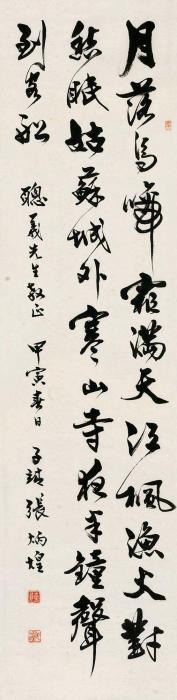 月落烏啼霜滿天江楓漁火對
愁眠姑蘇城外寒山寺夜半鐘聲
到客船
聰義先生教正 甲寅春日 子靖張炳煌